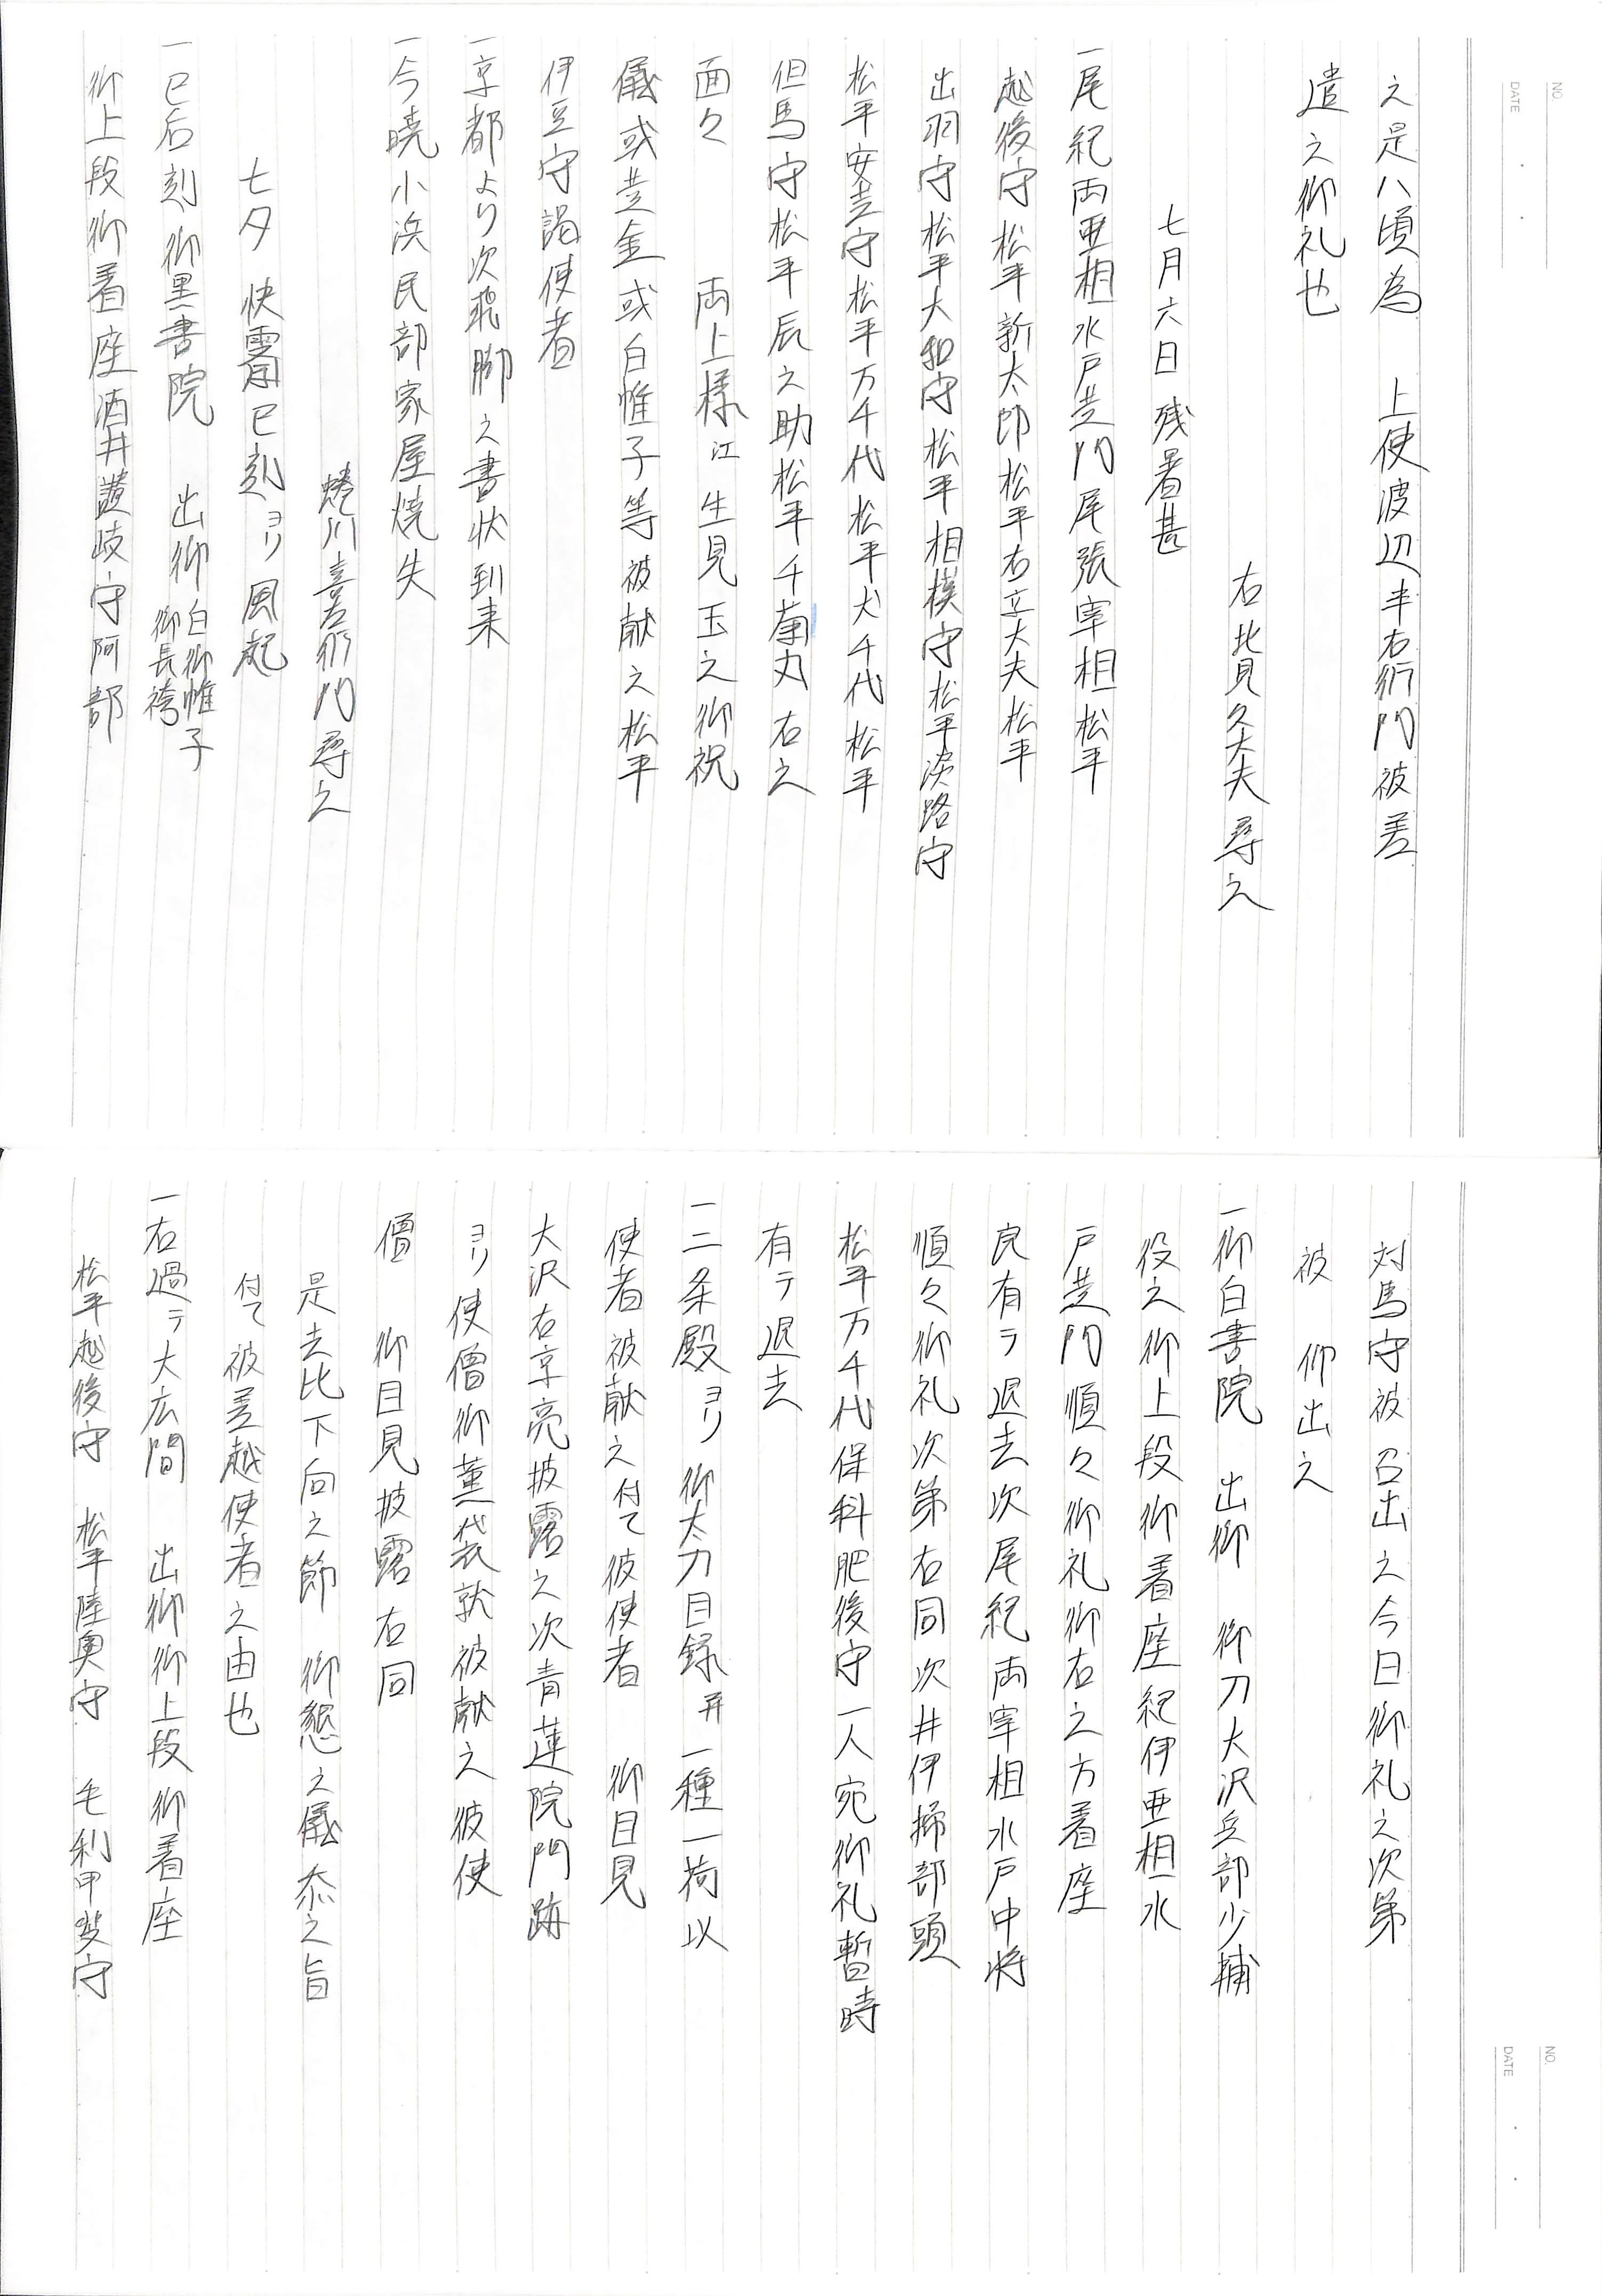 NO.
DATE
之是ハ頃為　上使渡辺半右衛門被差
遣之御礼也
右北見久大夫尋之
七月六日 残暑甚
一尾紀両亜相水戸黄門尾張宰相松平
越後守松平新太郎松平右京大夫松平
出羽守松平大和守松平相模守松平淡路守
松平安芸守松平万千代松平犬千代松平
但馬守松平辰之助松平千菊丸右之
面々　両上様江生見玉之御祝
儀或黄金或白帷子等被献之松平
伊豆守謁使者
一京都より次飛脚之書状到来
一今暁小浜民部家屋焼失
蜷川喜左衛門尋之
七夕 快霽巳刻ヨリ風起
一巳后刻御黒書院　出御 白御帷子 御長袴
御上段御着座酒井讃岐守阿部
NO.
DATE
対馬守被召出之今日御礼之次第
被　仰出之
一御白書院　出御　御刀大沢兵部少輔
役之御上段御着座紀伊亜相水
戸黄門順々御礼御右之方着座
良有テ退去次尾紀両宰相水戸中将
順々御礼次第右同次井伊掃部頭
松平万千代保科肥後守一人宛御礼暫時
有テ退去
一二条殿ヨリ御太刀目録并一種一荷以
使者被献之付て彼使者　御目見
大沢右京亮披露之次青蓮院門跡
ヨリ使僧御薫袋就被献之彼使
僧　御目見披露右同
是去比下向之節　御懇之儀忝之旨
付て被差越使者之由也
一右過テ大広間　出御御上段御着座
松平越後守　松平陸奥守　毛利甲斐守